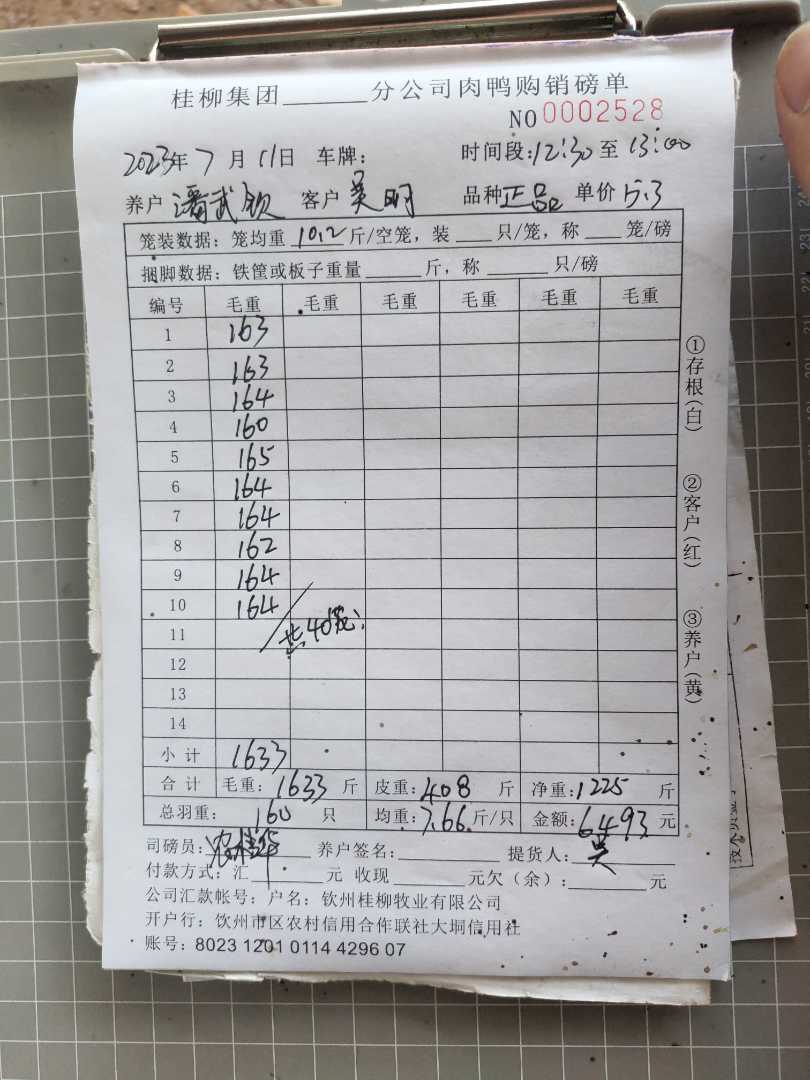 桂柳集团______分公司肉鸭购销磅单
NO 0002528
2023年 7 月 11日 车牌: 时间段:12:30 至 13:00
养户 潘武钦 客户 吴明 品种 正品 单价 5.3
笼装数据: 笼均重 10.2 斤/空笼, 装 ___ 只/笼, 称 ___ 笼/磅
捆脚数据: 铁筐或板子重量 _____ 斤, 称 _____ 只/磅
编号 毛重 毛重 毛重 毛重 毛重 毛重
1 163
2 163
3 164
4 160
5 165
6 164
7 164
8 162
9 164
10 164
11 共40笼
12
13
14
小 计 1633
合 计 毛重: 1633 斤 皮重: 408 斤 净重: 1225 斤
总羽重: 160 只 均重: 7.66 斤/只 金额: 6493 元
司磅员: 农桂华 养户签名: 提货人: 吴
付款方式: 汇 ______ 元 收现 ______ 元欠(余): ______ 元
公司汇款帐号: 户名: 钦州桂柳牧业有限公司
开户行: 饮州市区农村信用合作联社大垌信用社
账号: 8023 1201 0114 4296 07
①存根(白)
②客户(红)
③养户(黄)